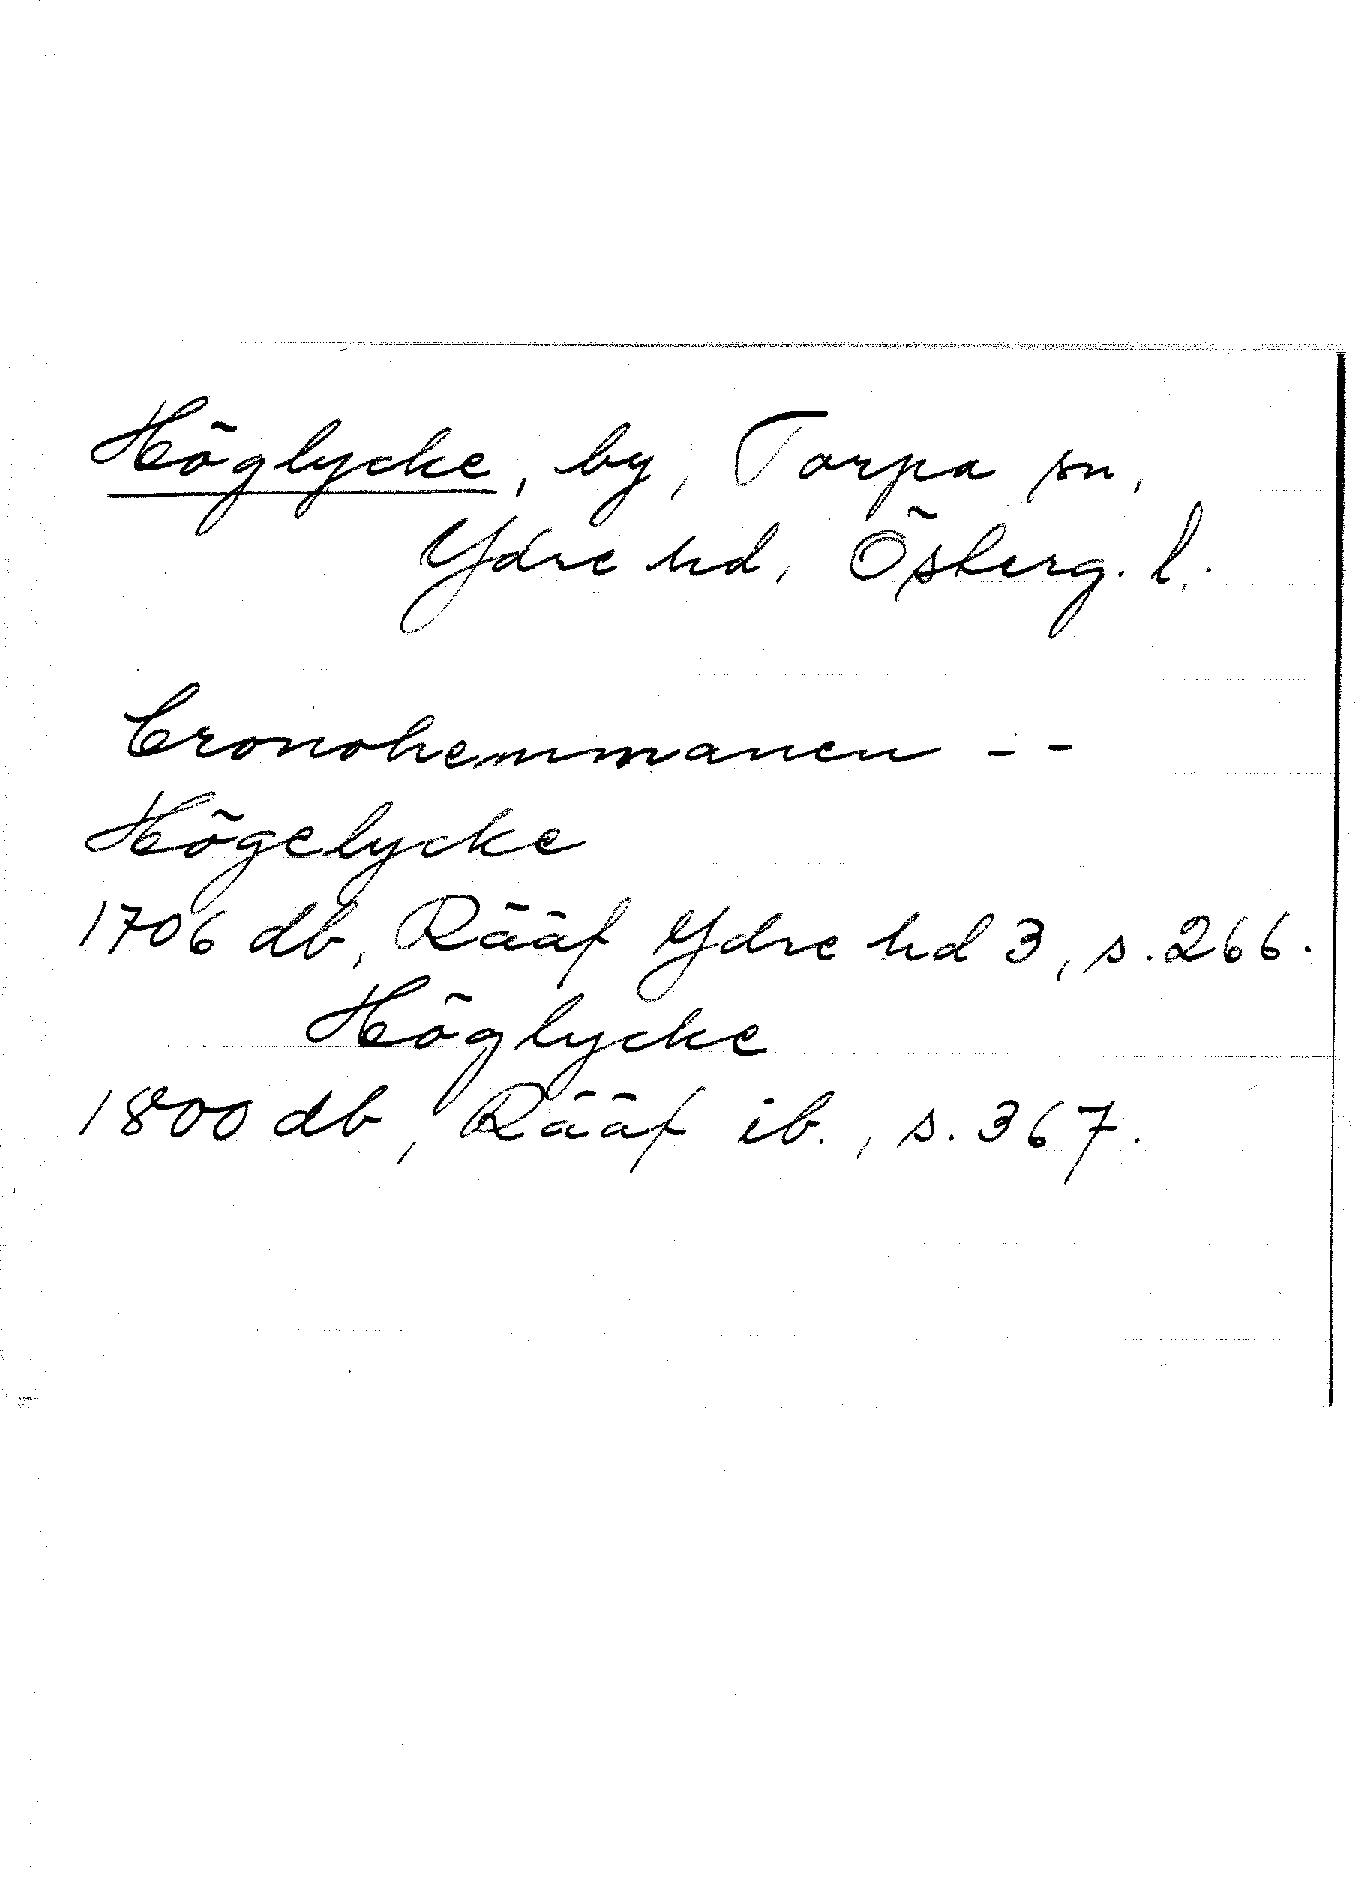 Höglycke, by, Torpa sn,
Ydre hd, Österg. l.
Cronohemmanen --
Högelycke
1706 db, Rääf Ydre hd 3, s. 266.
Höglycke
1800 db, Rääf ib., s. 367.